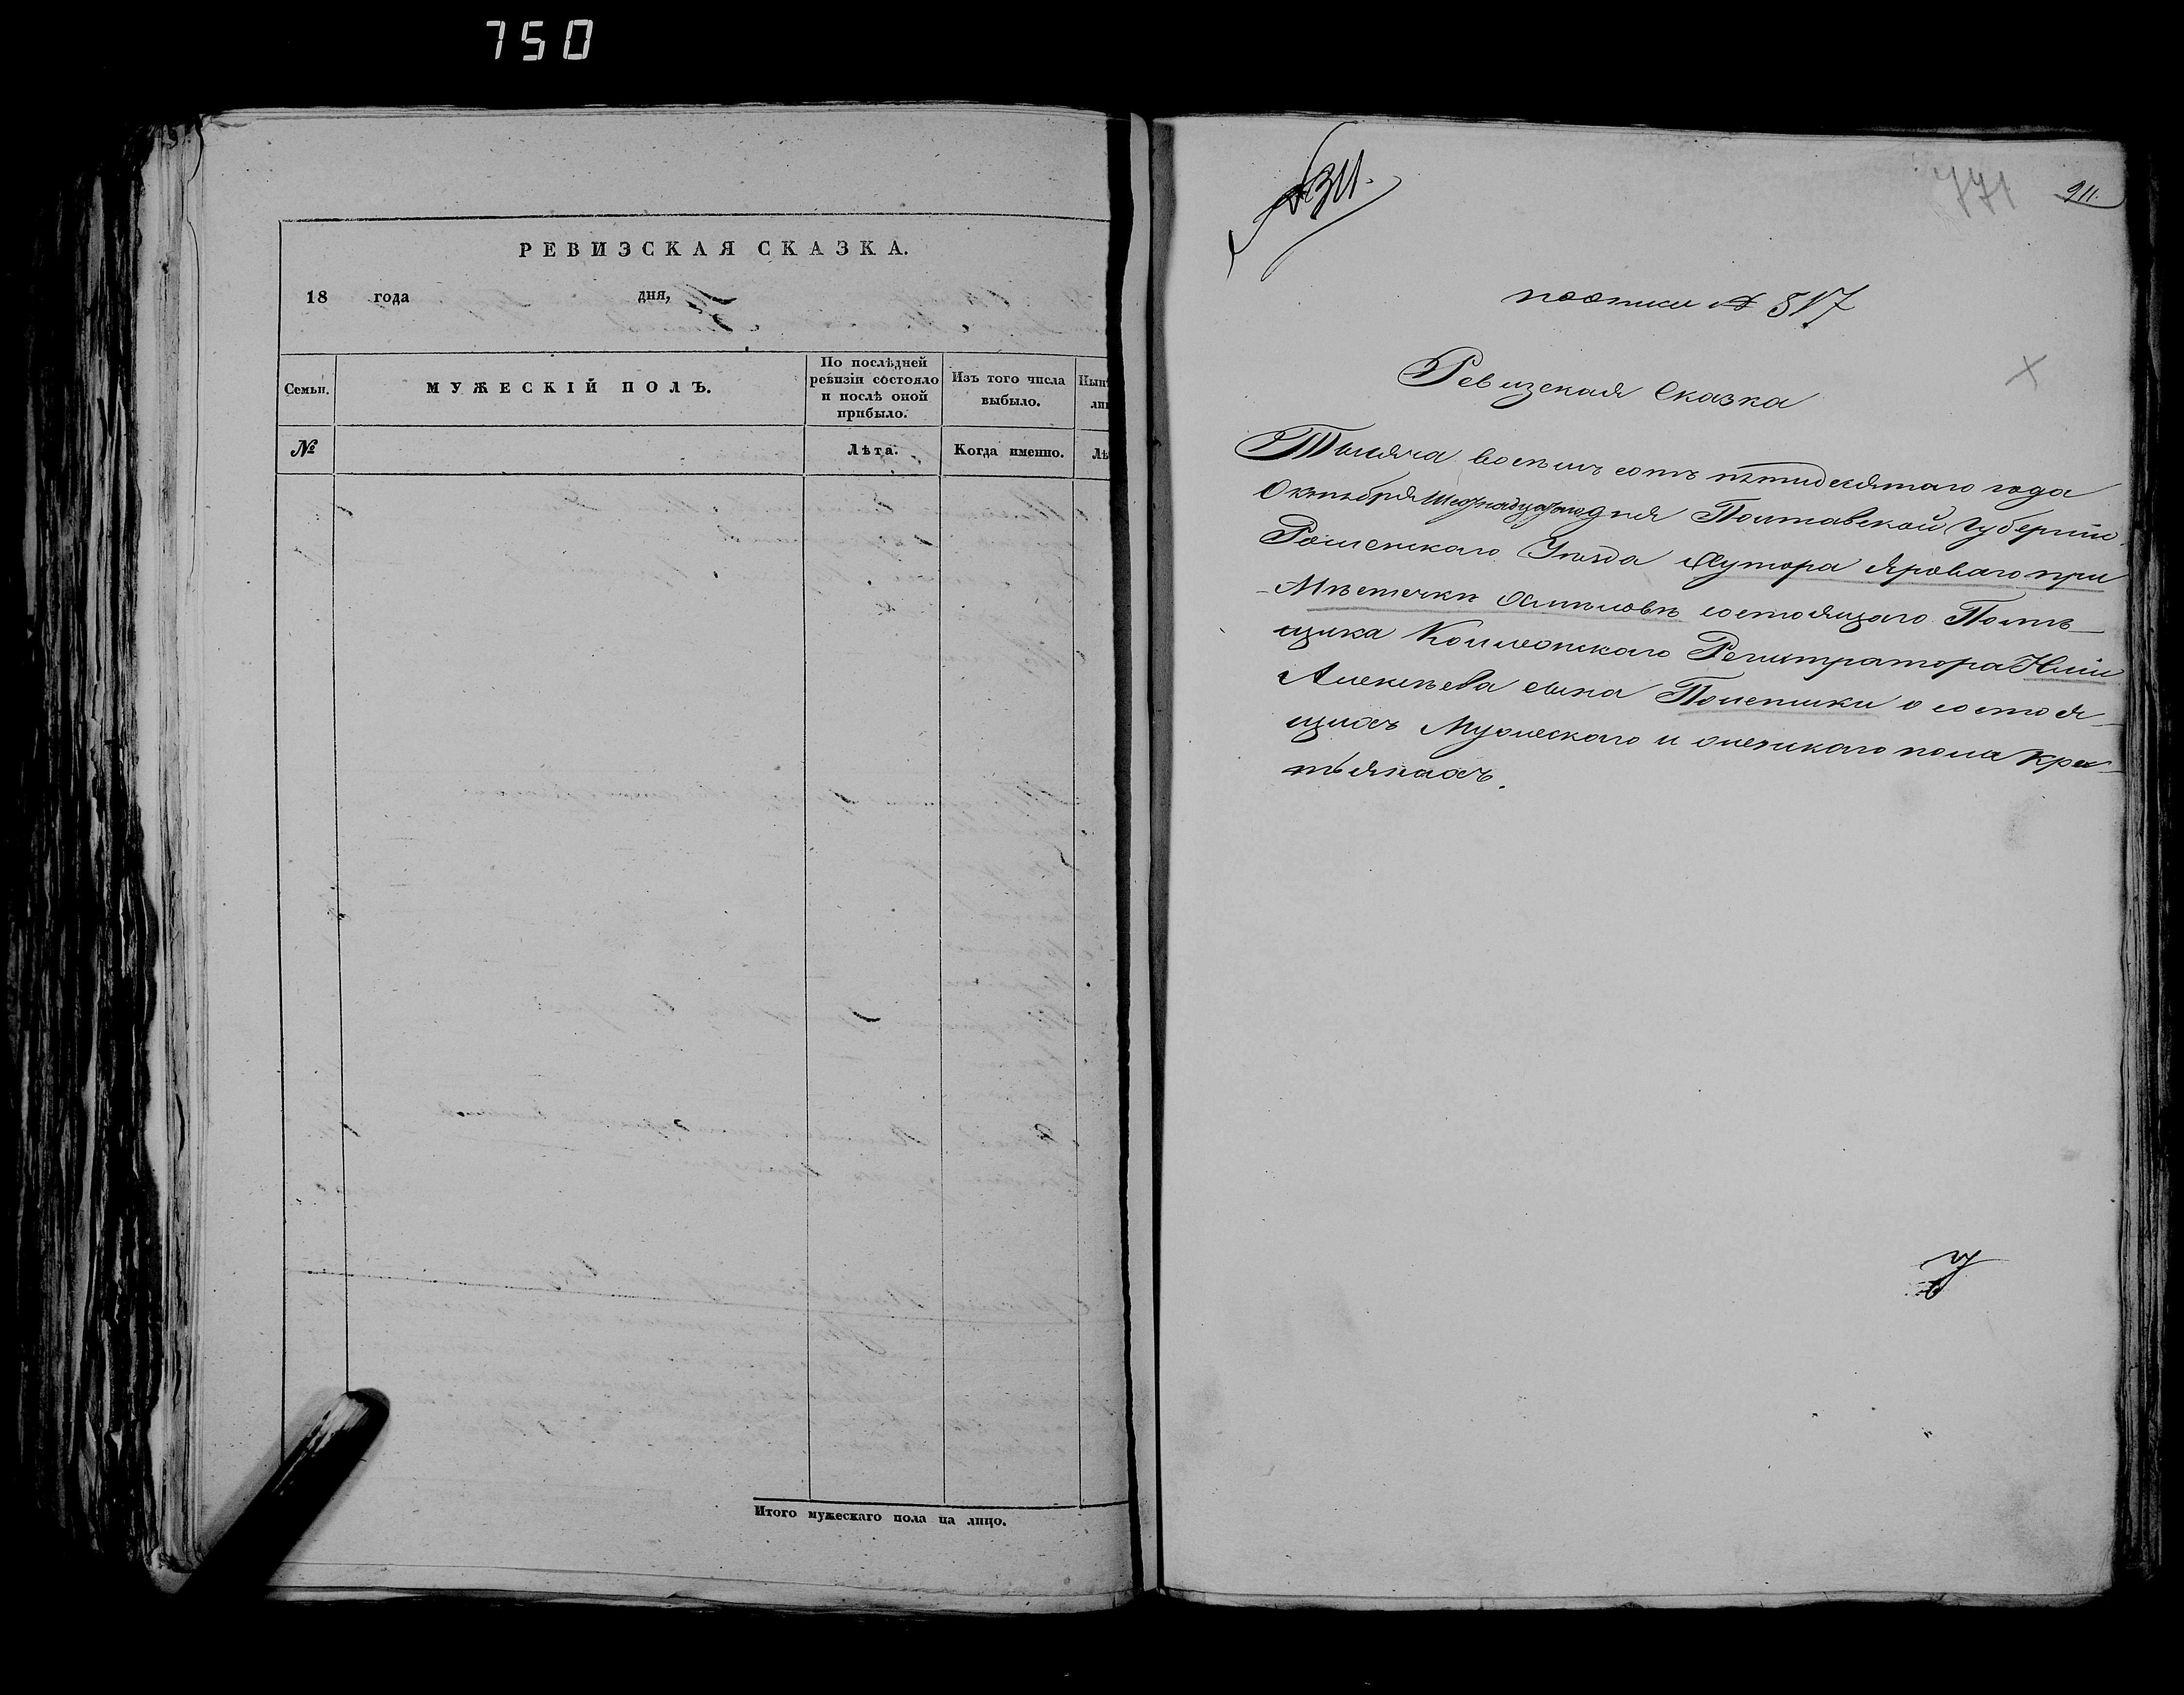 750
РЕВИЗСКАЯ СКАЗКА.
18 года дня,
Семьи.
МУЖЕСКІЙ ПОЛЪ.
По послѣдней
ревизіи состояло
и послѣ оной
прибыло.
Изъ того числа
выбыло.
№
Лѣта.
Когда именно.
Итого мужескаго пола на лицо.
771
911.
№ 517
Ревизская Сказка
Тысяча восемь сотъ пятидесятаго года
Октября Шестнадцатаго дня Полтавской Губерніи
Роменскаго Уѣзда Хутора Яроваго при
Мѣстечкѣ состоящаго Помѣ-
щика Коллежскаго Регистратора
Алексѣева сына Полетики о состоя-
щихъ Мужескаго и женскаго пола Кре-
стьянахъ.